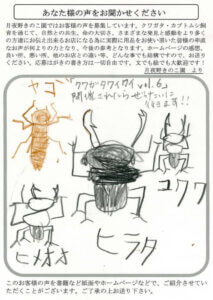 あなた様の声をお聞かせください
月夜野きのこ園ではお客様の声を募集しています。クワガタ・カブトムシ飼
育を通じて、自然との共生、命の大切さ、さまざまな発見と感動をより多く
の方達にお伝え出来るお店になる為に実際に用品をお使い頂いた皆様の率直
なお声が何よりの力となり、今後の参考となります。ホームページの感想、
良い所、悪い所、他のお店との違い等、どんな事でも結構ですので、お送り
ください。応募はがきの書き方は一切自由です。文でも絵でも大歓迎です！
月夜野きのこ園 より
ヤゴ
「クワガタワイワイ vol.6」
コクワ
ヒメオオ
ヒラタ
このお客様の声を書籍など紙面やホームページなどで、ご紹介させてい
ただくことがございます。ご了承の上お送り下さい。